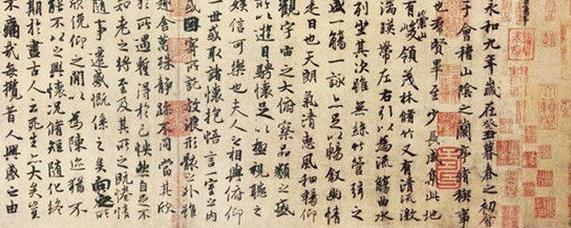 永和九年歲在癸丑暮春之初會
于會稽山陰之蘭亭脩稧事
也群賢畢至少長咸集此地
有崇山峻領茂林脩竹又有清流激
湍暎帶左右引以為流觴曲水
列坐其次雖無絲竹管弦之
盛一觴一詠亦足以暢敘幽情
是日也天朗氣清惠風和暢仰
觀宇宙之大俯察品類之盛
所以遊目騁懷足以極視聽之
娛信可樂也夫人之相與俯仰
一世或取諸懷抱悟言一室之內
或因寄所託放浪形骸之外雖
趣舍萬殊靜躁不同當其欣
於所遇暫得於己怏然自足不
知老之將至及其所之既惓情
隨事遷感慨係之矣向之所
欣俛仰之間以為陳迹猶不
能不以之興懷況脩短隨化終
期於盡古人云死生亦大矣豈
不痛哉每攬昔人興感之由